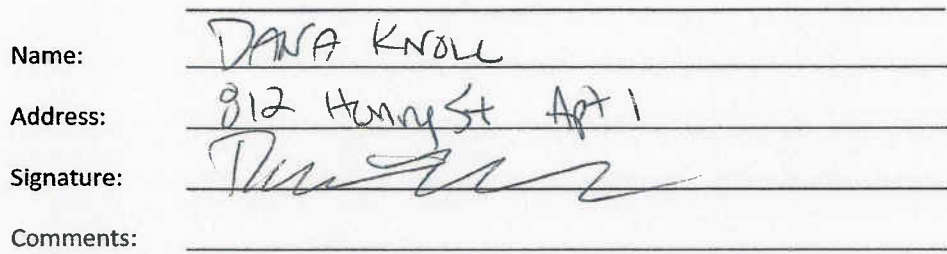 Name: DANA KNOLL
Address: 812 Henry St Apt 1
Signature:
Comments: